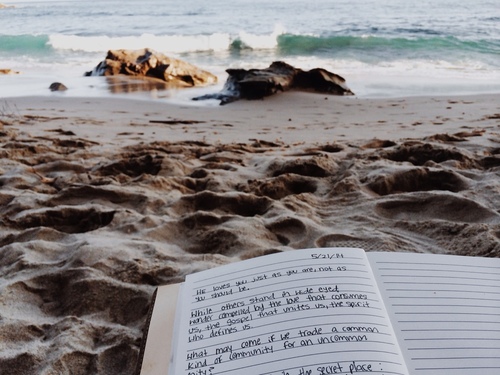 5/21/
He loves you just as you are, not as
you should be.
While others stand in wide eyed
wonder compelled by the love that consumes
us, the gospel that unites us, the spirit
who defines us.
what may come if we trade a common
kind of community for an uncommon
the secret place :